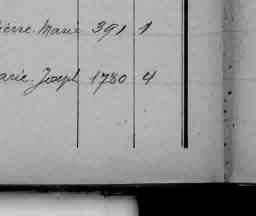 ierre Marie 391 1
arie Joseph 1780 4